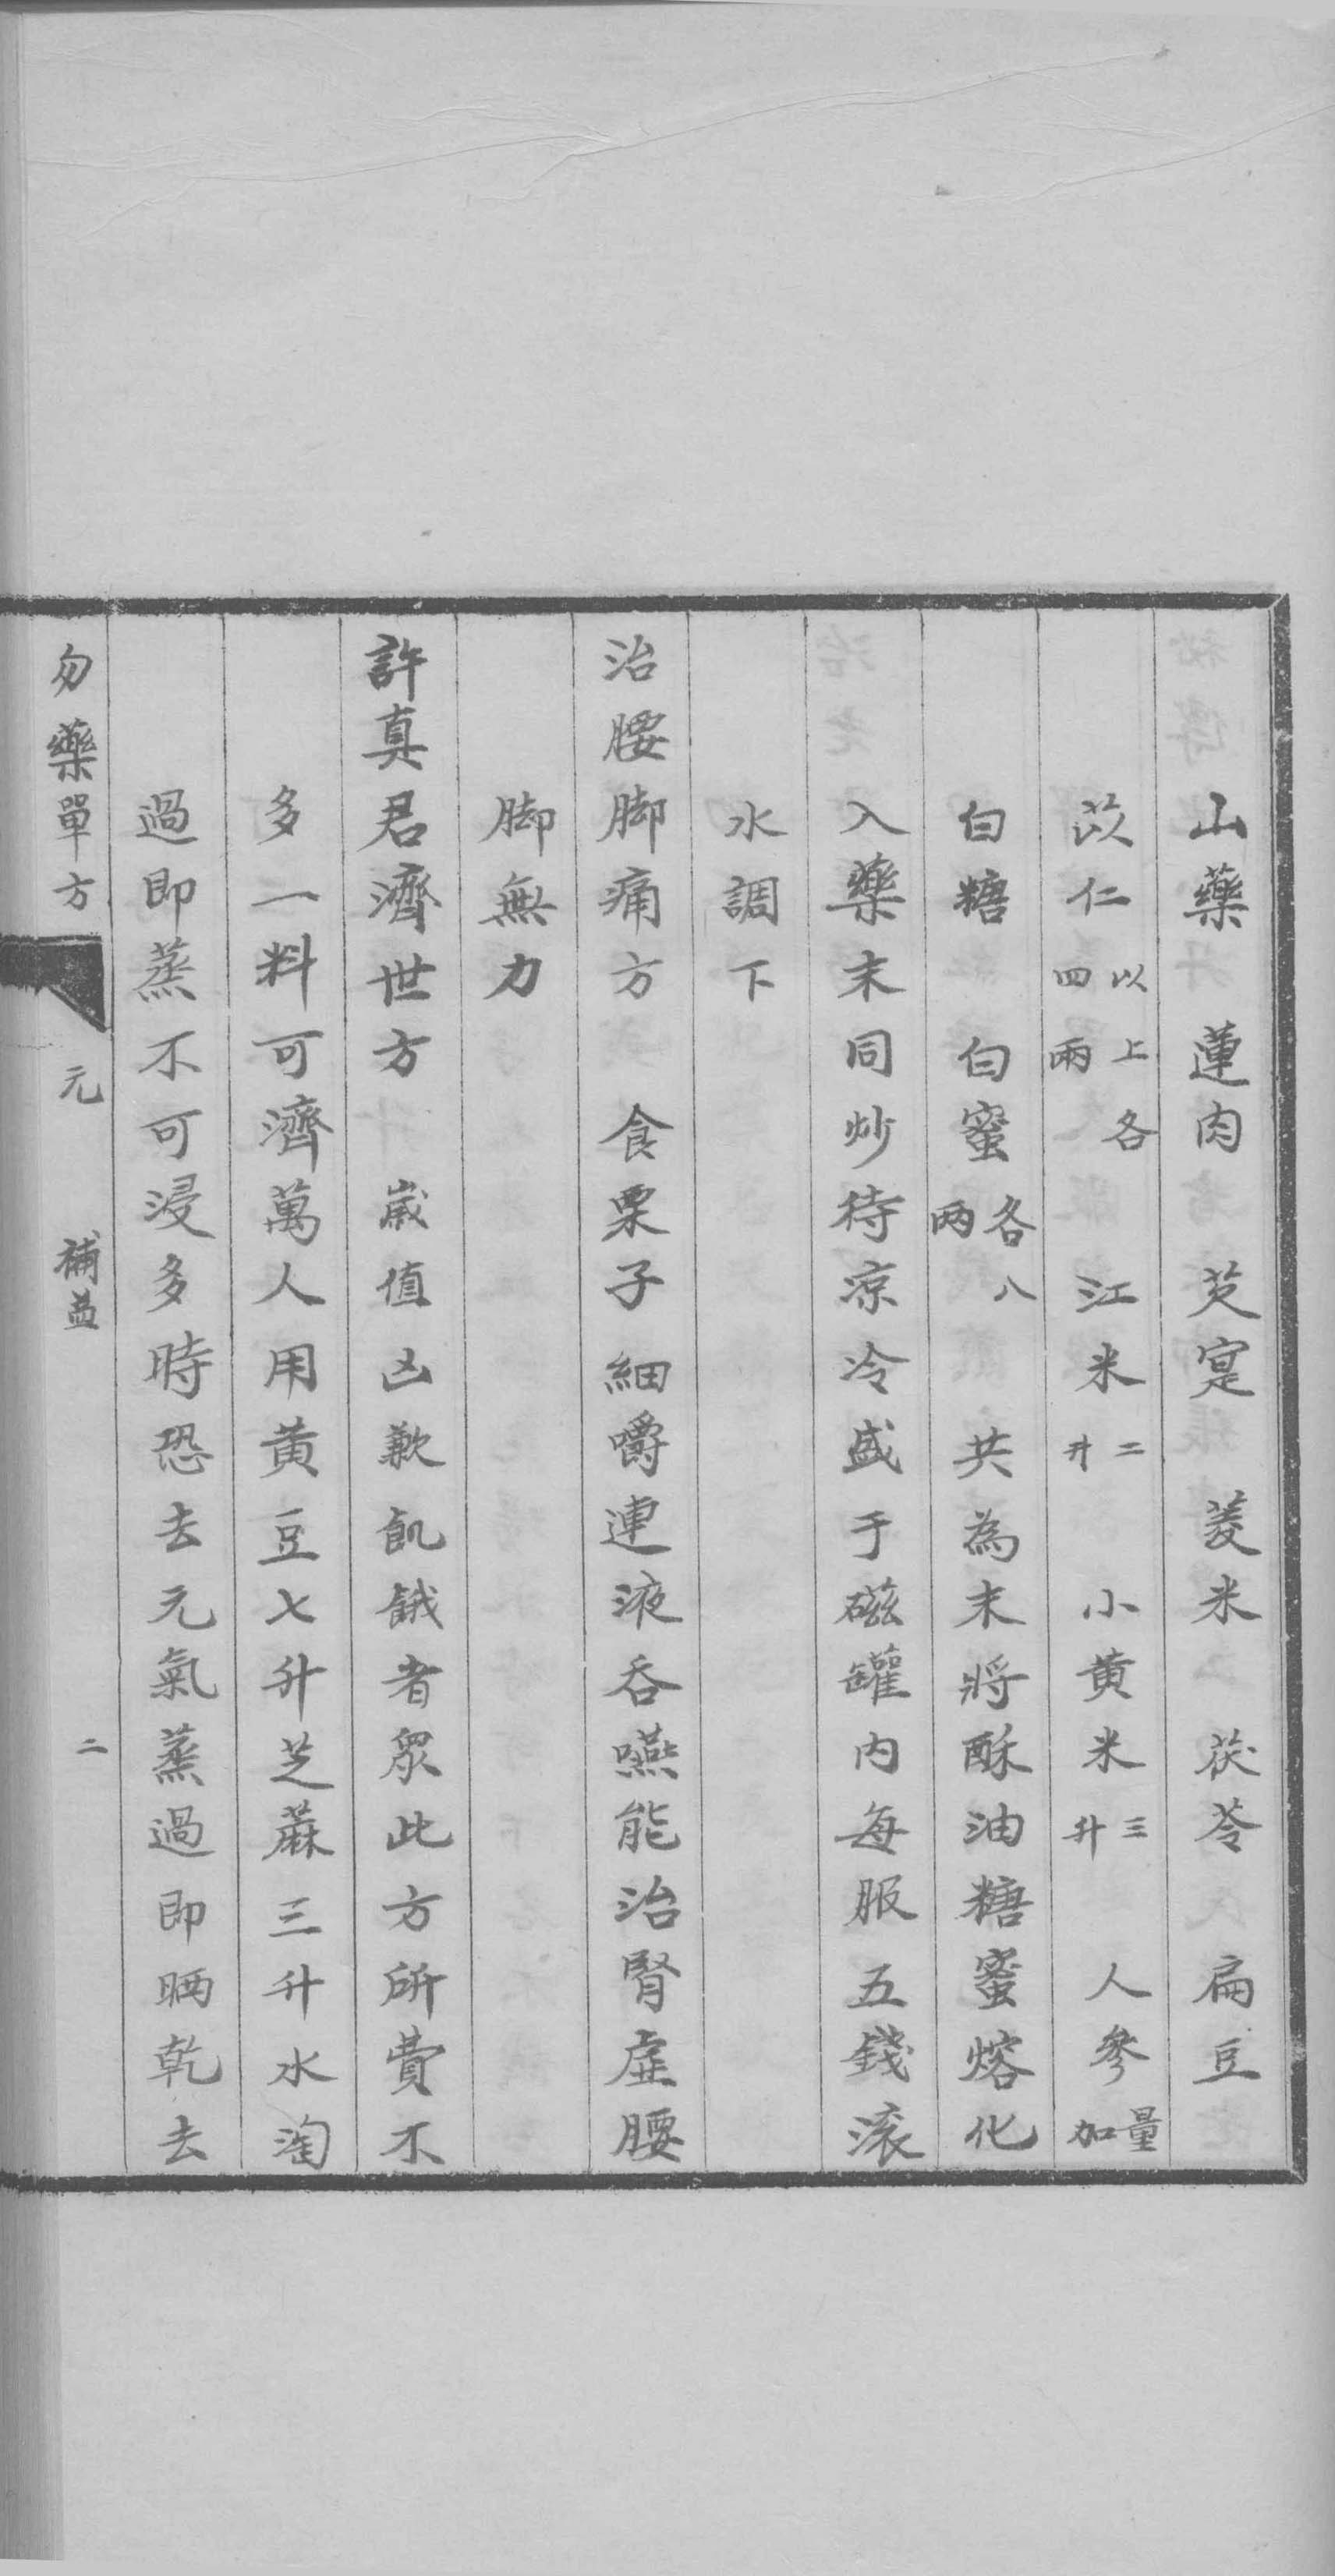 山藥　蓮肉　芡寔　菱米　茯苓　扁豆
苡仁以上各四兩　江米二升　小黄米三升　人參量加
白糖　白蜜各八両　共為末將酥油糖蜜熔化
入藥末同炒待凉冷盛于磁罐内每服五錢滚
水調下
治腰脚痛方　食栗子細嚼連液吞嚥能治腎虚腰
脚無力
許真君濟世方　歲值凶歉飢餓者眾此方所費不
多一料可濟萬人用黄豆七升芝蔴三升水淘
過即蒸不可浸多時恐去元氣蒸過即晒乾去
勿藥單方　元　補益　二